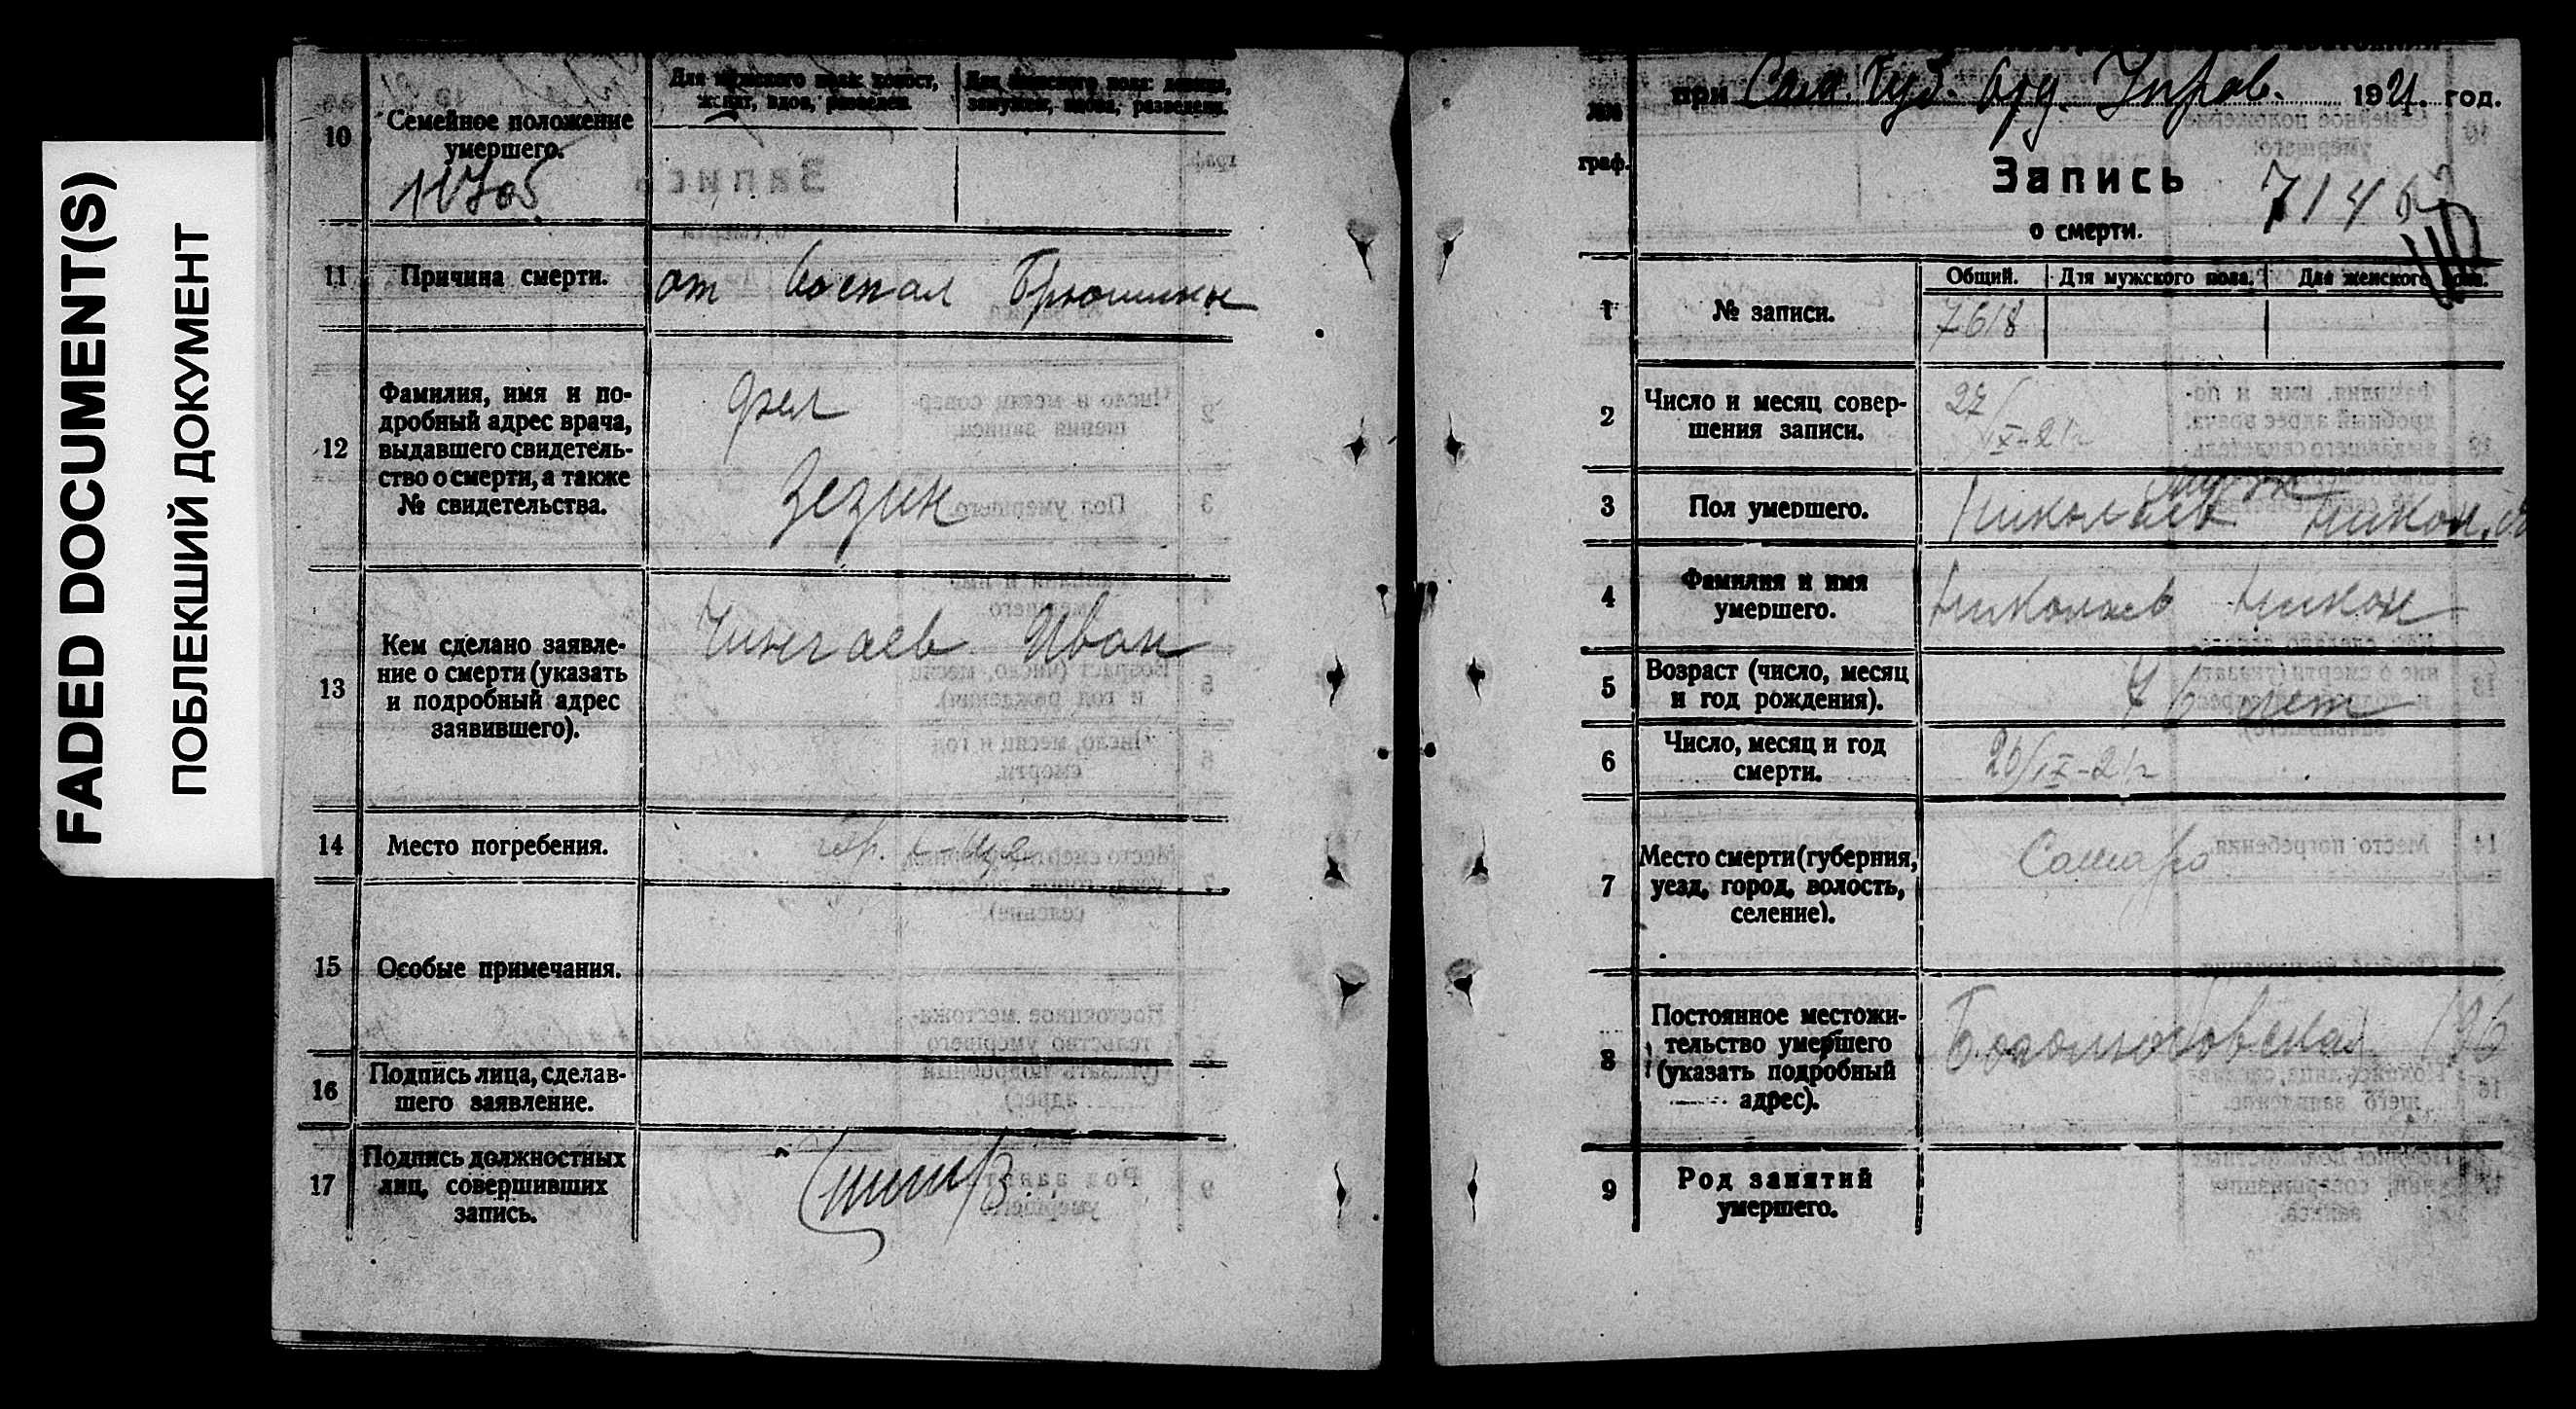 FADED DOCUMENT(S)
ПОБЛЕКШИЙ ДОКУМЕНТ
10
Семейное положение
умершего.
Для мужского пола: холост,
женат, вдов, разведен.
Для женского пола: девица,
замужем, вдова, разведена.
11
Причина смерти.
от воспал Брюшины
12
Фамилия, имя и по-
дробный адрес врача,
выдавшего свидетель-
ство о смерти, а также
№ свидетельства.
фел
Зезин
13
Кем сделано заявле-
ние о смерти (указать
и подробный адрес
заявившего).
Чингаев Иван
14
Место погребения.
15
Особые примечания.
16
Подпись лица, сделав-
шего заявление.
17
Подпись должностных
лиц, совершивших
запись.
при Сам. Губ. Отд. Управ. 1921 год.
№№
граф.
Запись
о смерти.
7146
Общий. Для мужского пола. Для женского пола.
1
№ записи.
7618
2
Число и месяц совер-
шения записи.
27/IX-21г
3
Пол умершего.
Николаев Никон
4
Фамилия и имя
умершего.
Николаев Никон
5
Возраст (число, месяц
и год рождения).
76 лет
6
Число, месяц и год
смерти.
26/IX-21г
7
Место смерти (губерния,
уезд, город, волость,
селение).
Самара
8
Постоянное местожи-
тельство умершего
(указать подробный
адрес).
196
9
Род занятий
умершего.